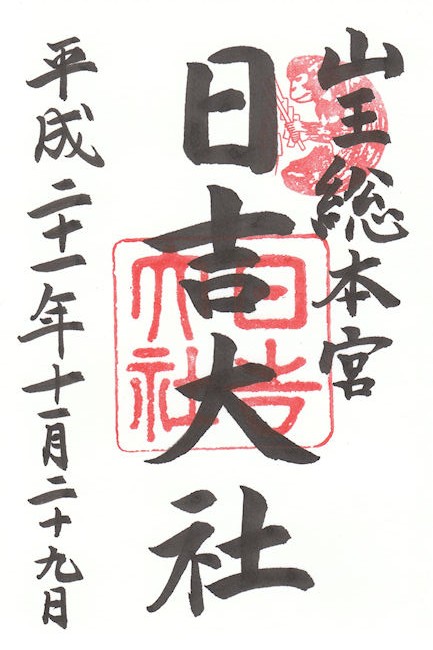 山王総本宮
日吉大社
日吉大社
平成二十一年十一月二十九日